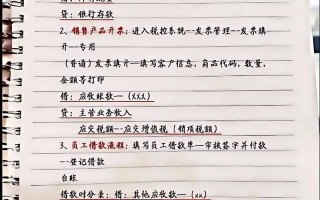 贷：银行存款
2、销售产品开票：进入税控系统--发票管理--发票填
开--专用
（普通）发票填开--填写客户信息，商品代码，数量，
金额等打印
借：应收账款--（xxx）
贷：主营业务收入
应交税额--应交增值税（销项税额）
3、员工借款流程：填写员工借款单--审核签字并付款
--登记借款
台账
借款时分录：借：其他应收款--（xx）